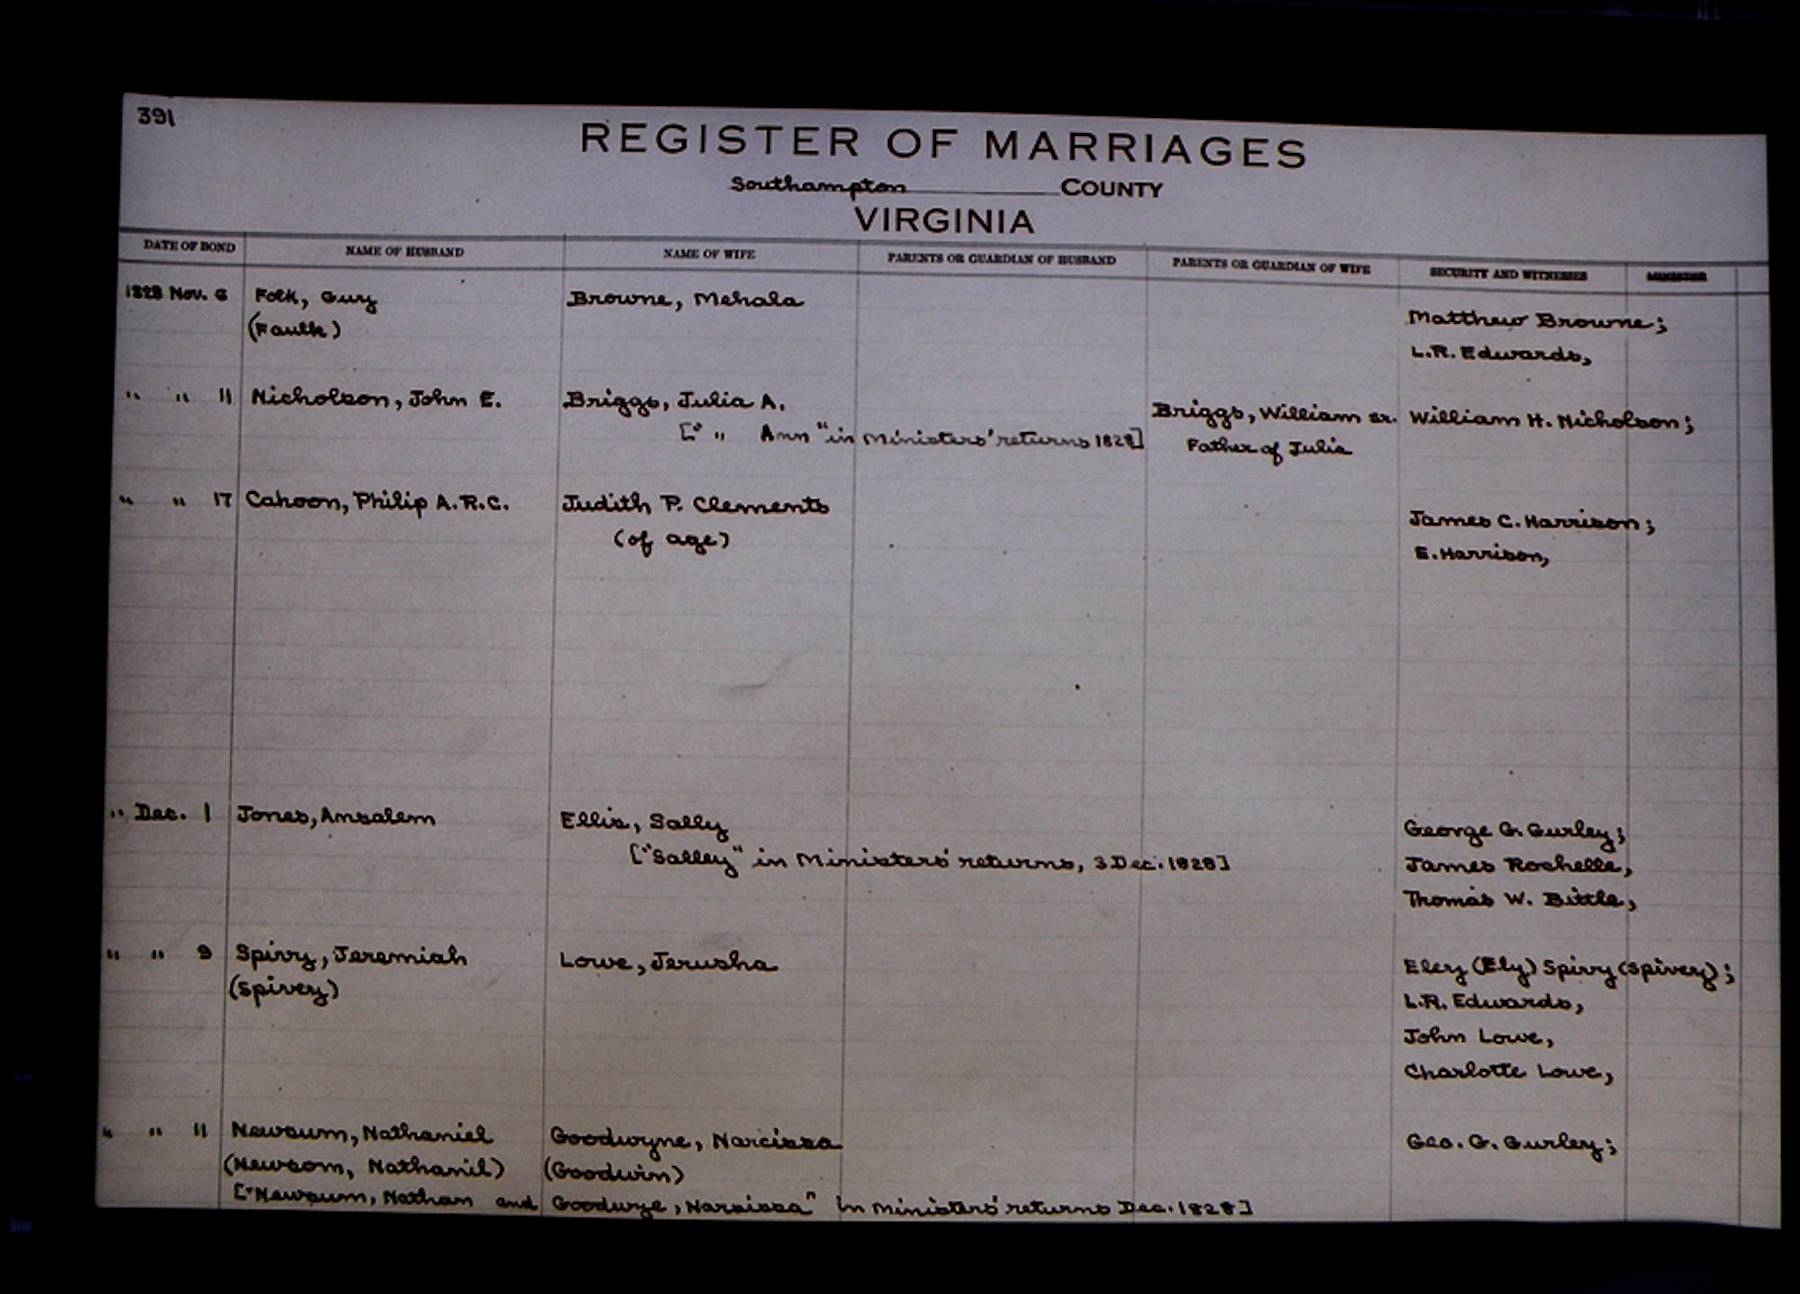 391
REGISTER OF MARRIAGES
Southampton COUNTY
VIRGINIA
DATE OF BOND NAME OF HUSBAND NAME OF WIFE PARENTS OR GUARDIAN OF HUSBAND PARENTS OR GUARDIAN OF WIFE SECURITY AND WITNESSES MINISTER
1828 Nov. 6 Folk, Gury Browne, Mehala
(Faulk) Matthew Browne;
L.R. Edwards,
" " 11 Nicholson, John E. Briggs, Julia A. Briggs, William sr. William H. Nicholson;
[" " Ann" in Ministers' returns 1828] Father of Julia
" " 17 Cahoon, Philip A.R.C. Judith P. Clements James C. Harrison;
(of age) E. Harrison,
" Dec. 1 Jones, Amsalem Ellis, Sally George G. Gurley;
["Salley" in Ministers' returns, 3 Dec. 1828] James Rochelle,
Thomas W. Bittle,
" " 9 Spivy, Jeremiah Lowe, Jerusha Eley (Ely) Spivy (Spivey);
(Spivey) L.R. Edwards,
John Lowe,
Charlotte Lowe,
" " 11 Newsum, Nathaniel Goodwyne, Narcissa Geo. G. Gurley;
(Newsom, Nathanil) (Goodwin)
["Newsum, Nathan and Goodwye, Narsissa" in Ministers' returns Dec. 1828]